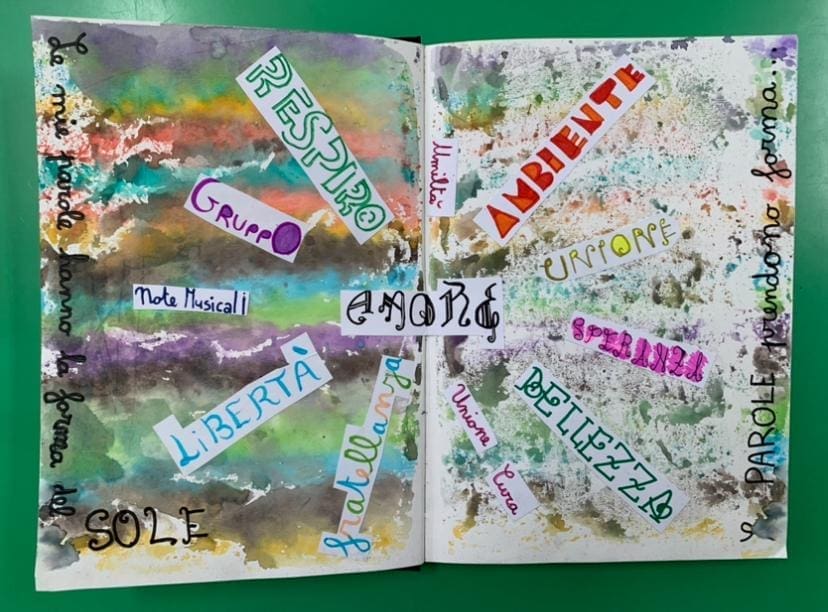 Le mie parole hanno la forma del
SOLE
RESPIRO
GRUPPO
Note Musicali
AMORE
LiBERTÀ
fratellanza
Umiltà
AMBIENTE
UNIONE
SPERANZA
BELLEZZA
Unione
Cura
e PAROLE prendono forma...